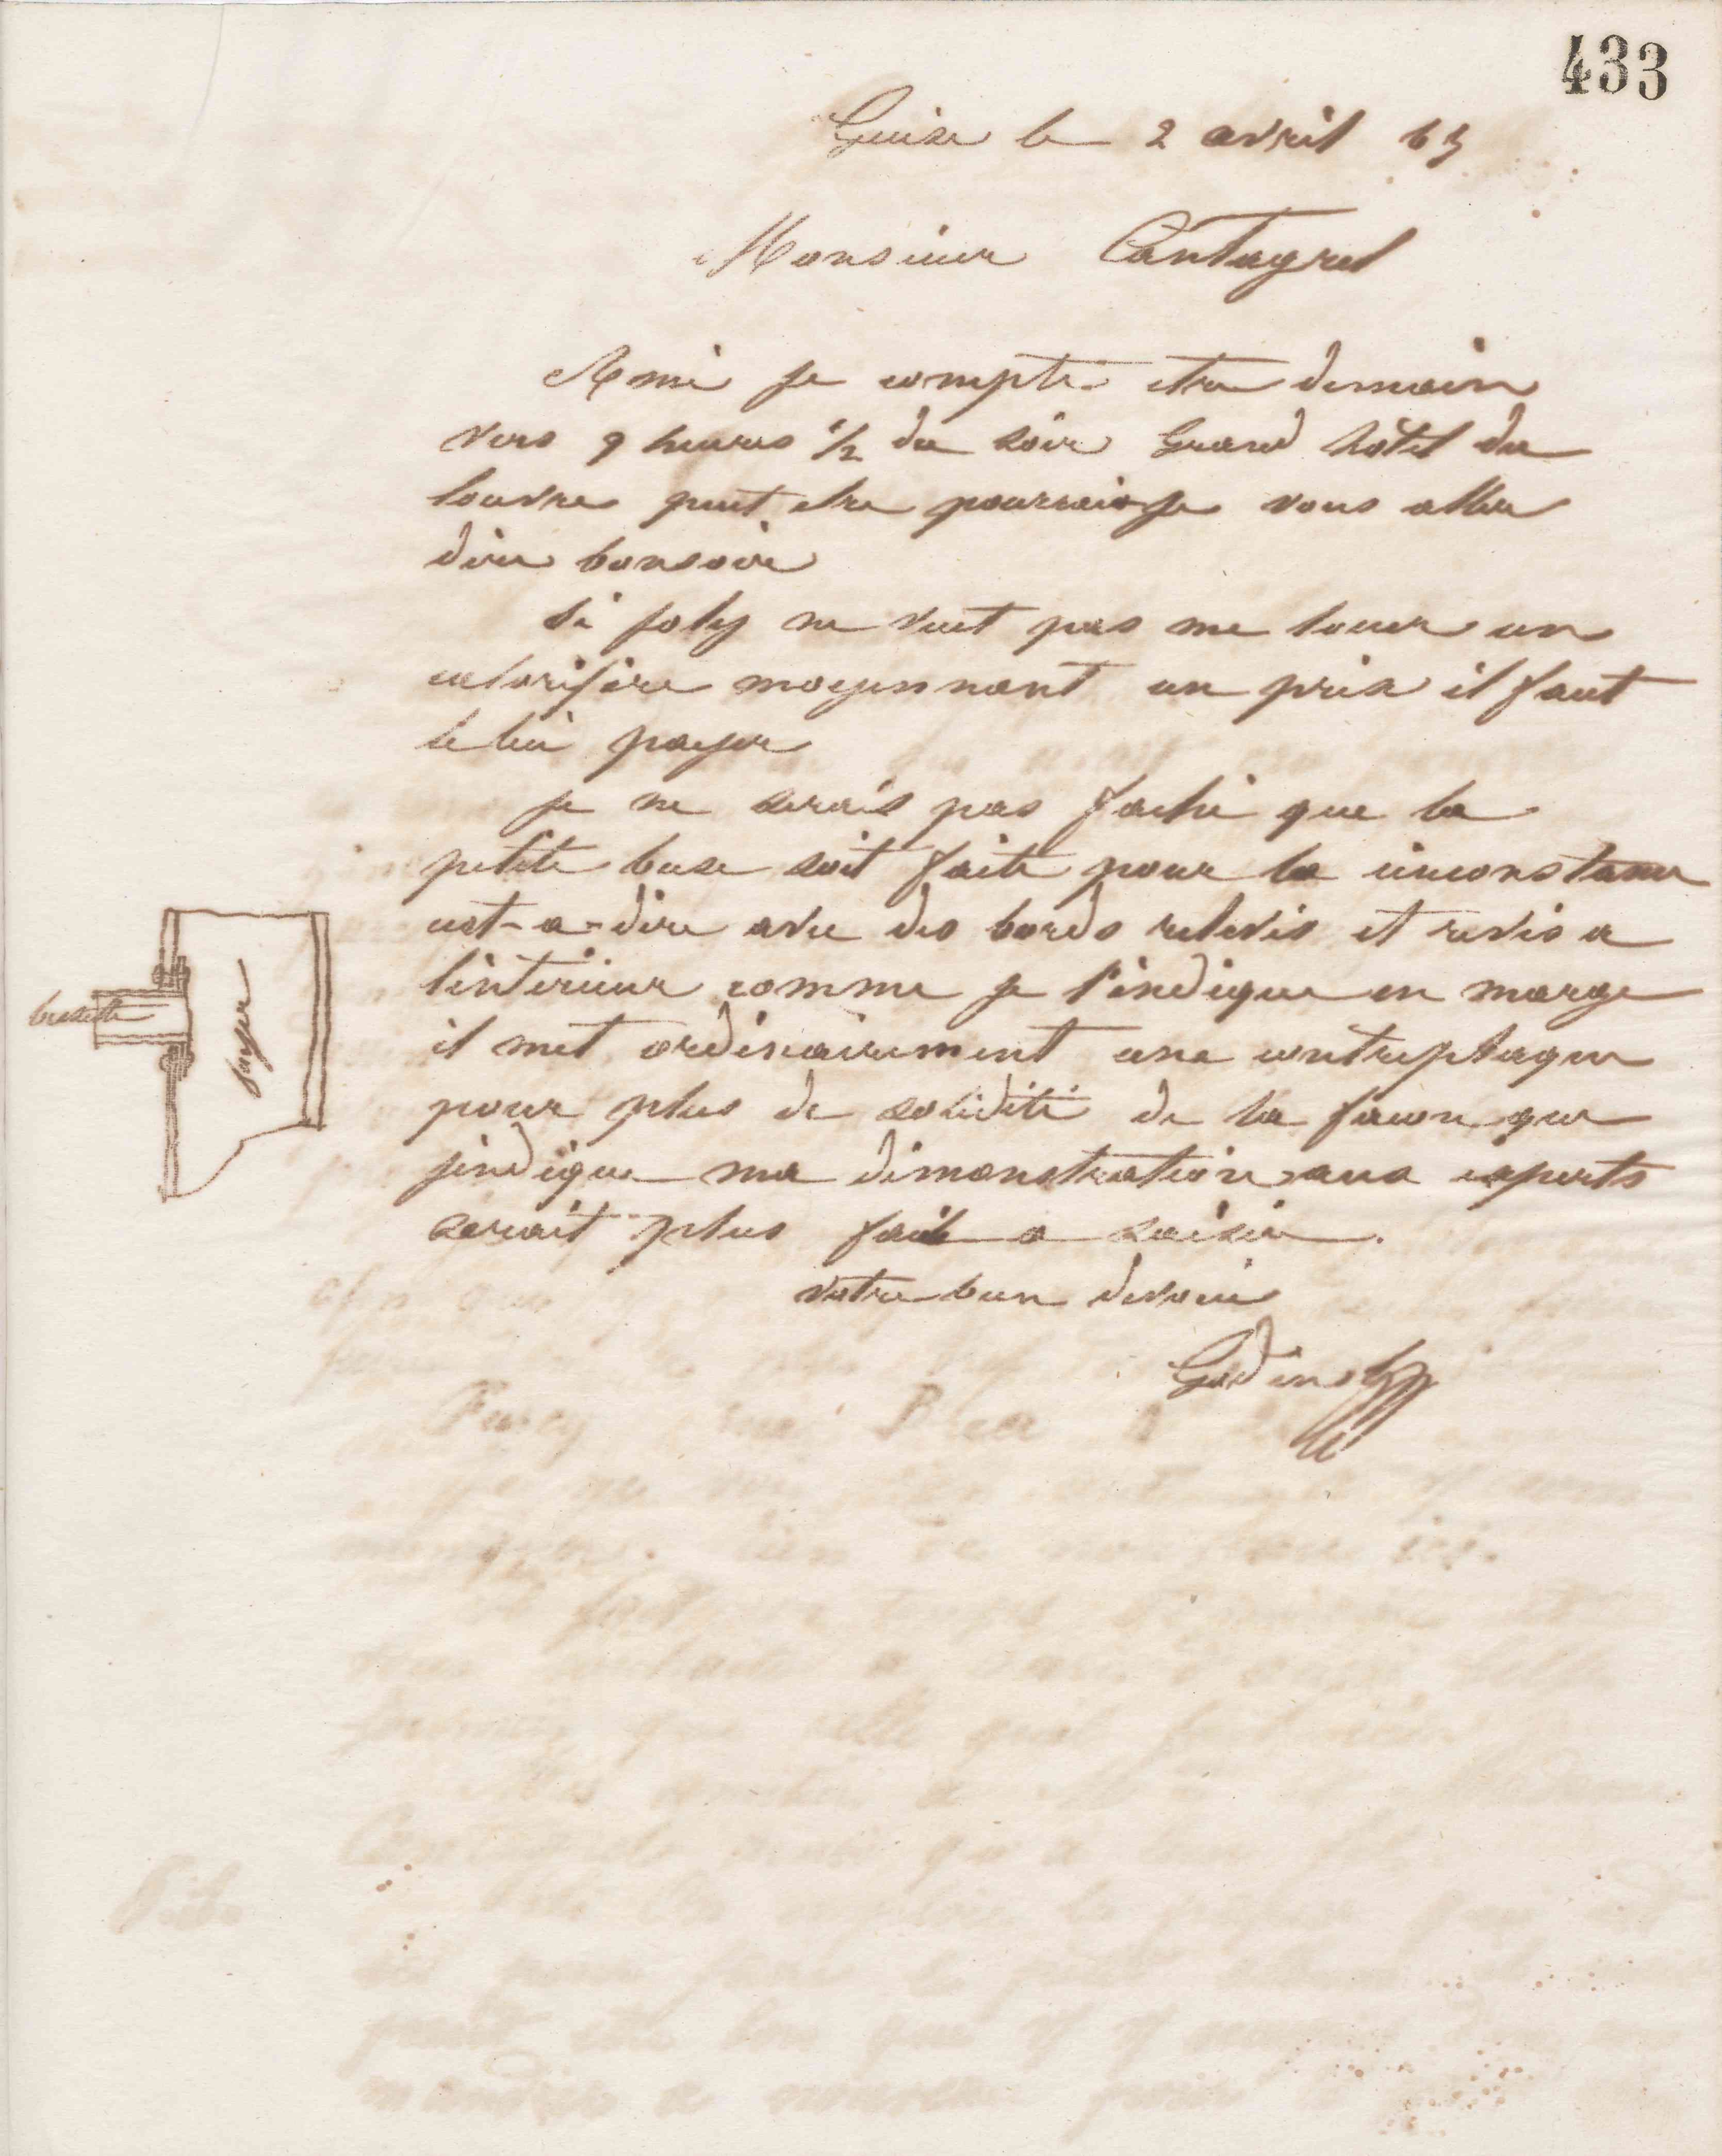 433
Guise le 2 avril 65
Monsieur Cantagrel
Ami je compte etre demain
vers 9 heures 1/2 du soir Grand hôtel du
louvre peut etre pourrais je vous aller
dire bonsoir
Si joly ne veut pas me louer un
calorifère moyennant un prix il faut
le lui payer
je ne serais pas faché que la
petite buse soit faite pour la circonstance
cest-a-dire avec des bords relevés et rivés a
l'intérieur comme je l'indique en marge
il met ordinairement une contreplaque
pour plus de solidité de la facon que
jindique ma démonstration aux experts
serait plus facile a saisir.
votre bien dévoué
Godin
busette
foyer